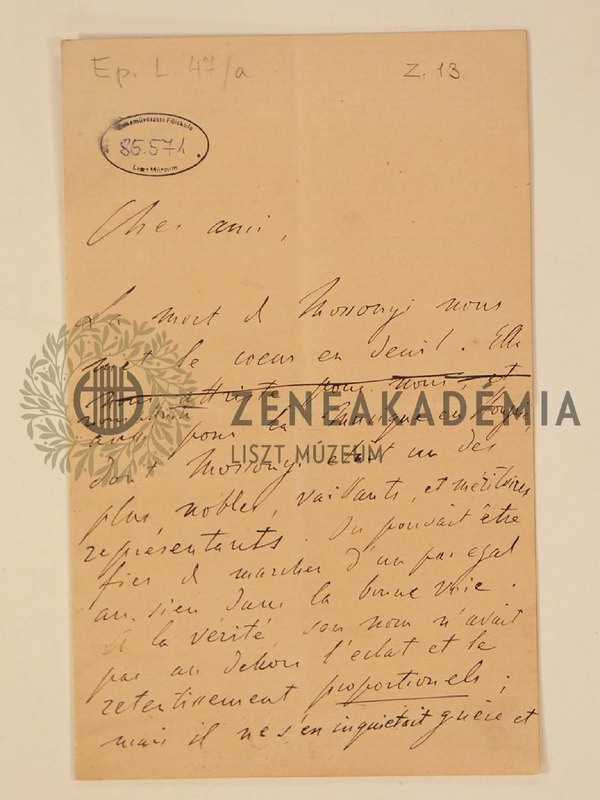 Ep. L. 47/a
Z. 13
Zeneművészeti Főiskola
85.571
Liszt Múzeum
Cher ami,
La mort de Mosonyi nous
met le coeur en deuil. Elle
nous attriste pour nous, et
nous attriste
aussi pour la Musique en Hongrie
dont Mosonyi était un des
plus nobles, vaillants, et méritoires
représentants. On pouvait être
fier de marcher d'un pas egal
au sien dans la bonne voie.
A la vérité, son nom n'avait
pas au dehors l'éclat et le
retentissement proportionels;
mais il ne s'en inquiétait guère et
ZENEAKADÉMIA
LISZT MÚZEUM